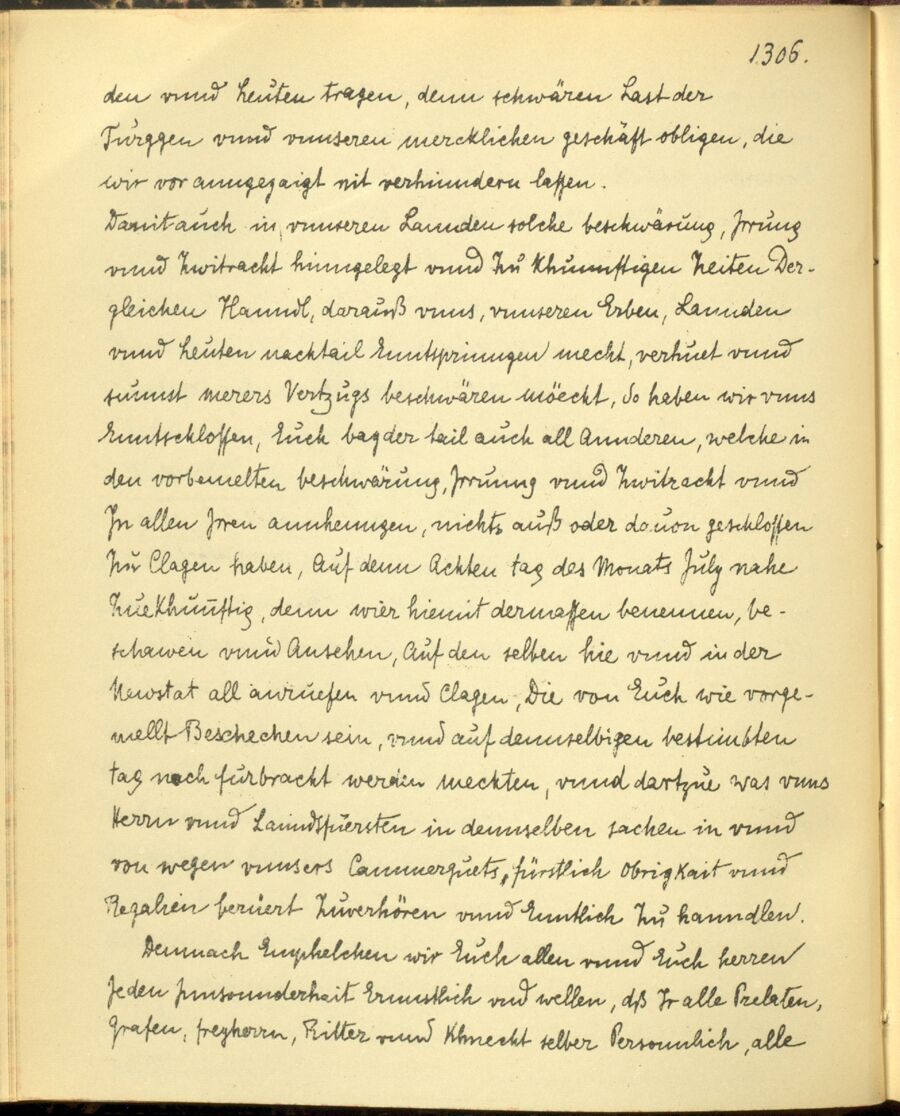 1306.
den vnnd Leuten tragen, denn schwären Last der
Türggen vnnd vnnseren mercklichen geschäft obligen, die
wir vor anngezaigt nit verhinndern lassen.
Damit auch in vnnseren Lannden solche beschwärung, Irrung
vnnd Zwitracht hinngelegt vnnd Zu Khunnftigen Zeiten Der-
gleichen Hanndl, darauß vnns, vnnseren Erben, Lannden
vnnd Leuten nachtail Enntsprinngen mecht, verhuet vnnd
sunnst merers Vertzugs beschwären möecht, So haben wir vnns
Enntschlossen, Euch bayder tail auch all Annderen, welche in
den vorbemelten beschwärung, Irrung vnnd Zwitracht vnnd
In allen Iren annhenngen, nichts auß oder douon geschlossen
Zu Clagen haben, Auf denn Achten tag des Monats July nahe
Zuekhünftig, denn wier hiemit dermassen benennen, be-
schawen vnnd Ansehen, Auf den selben hie vnnd in der
Newstat all anruefen vnnd Clagen, Die von Euch wie vorge-
mellt Beschechen sein, vnnd auf dennselbigen bestimbten
tag noch furbracht werden meckten, vnnd dartzue was vnns
Herrn vnnd Lanndsfuersten in dennselben sachen in vnnd
von wegen vnnsers Cammerguets, fürstlich Obrigkait vnnd
Regalien beruert Zuverhören vnnd Enntlich Zu hanndlen.
Demnach Emphelchen wir Euch allen vnnd Euch herren
Jeden Innsonnderhait Ernnstlich vnd wellen, dß Ir alle Prelaten,
Grafen, freyherrn, Ritter vnnd Khnecht selber Personnlich, alle